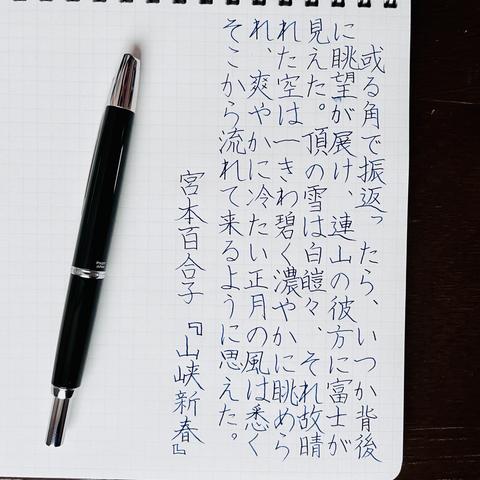 或る角で振返ったら、いつか背後
に眺望が展け、連山の彼方に富士が
見えた。頂の雪は白皚々、それ故晴
れた空は一きわ碧く濃やかに眺めら
れ、爽やかに冷たい正月の風は悉く
そこから流れて来るように思えた。
宮本百合子『山峡新春』